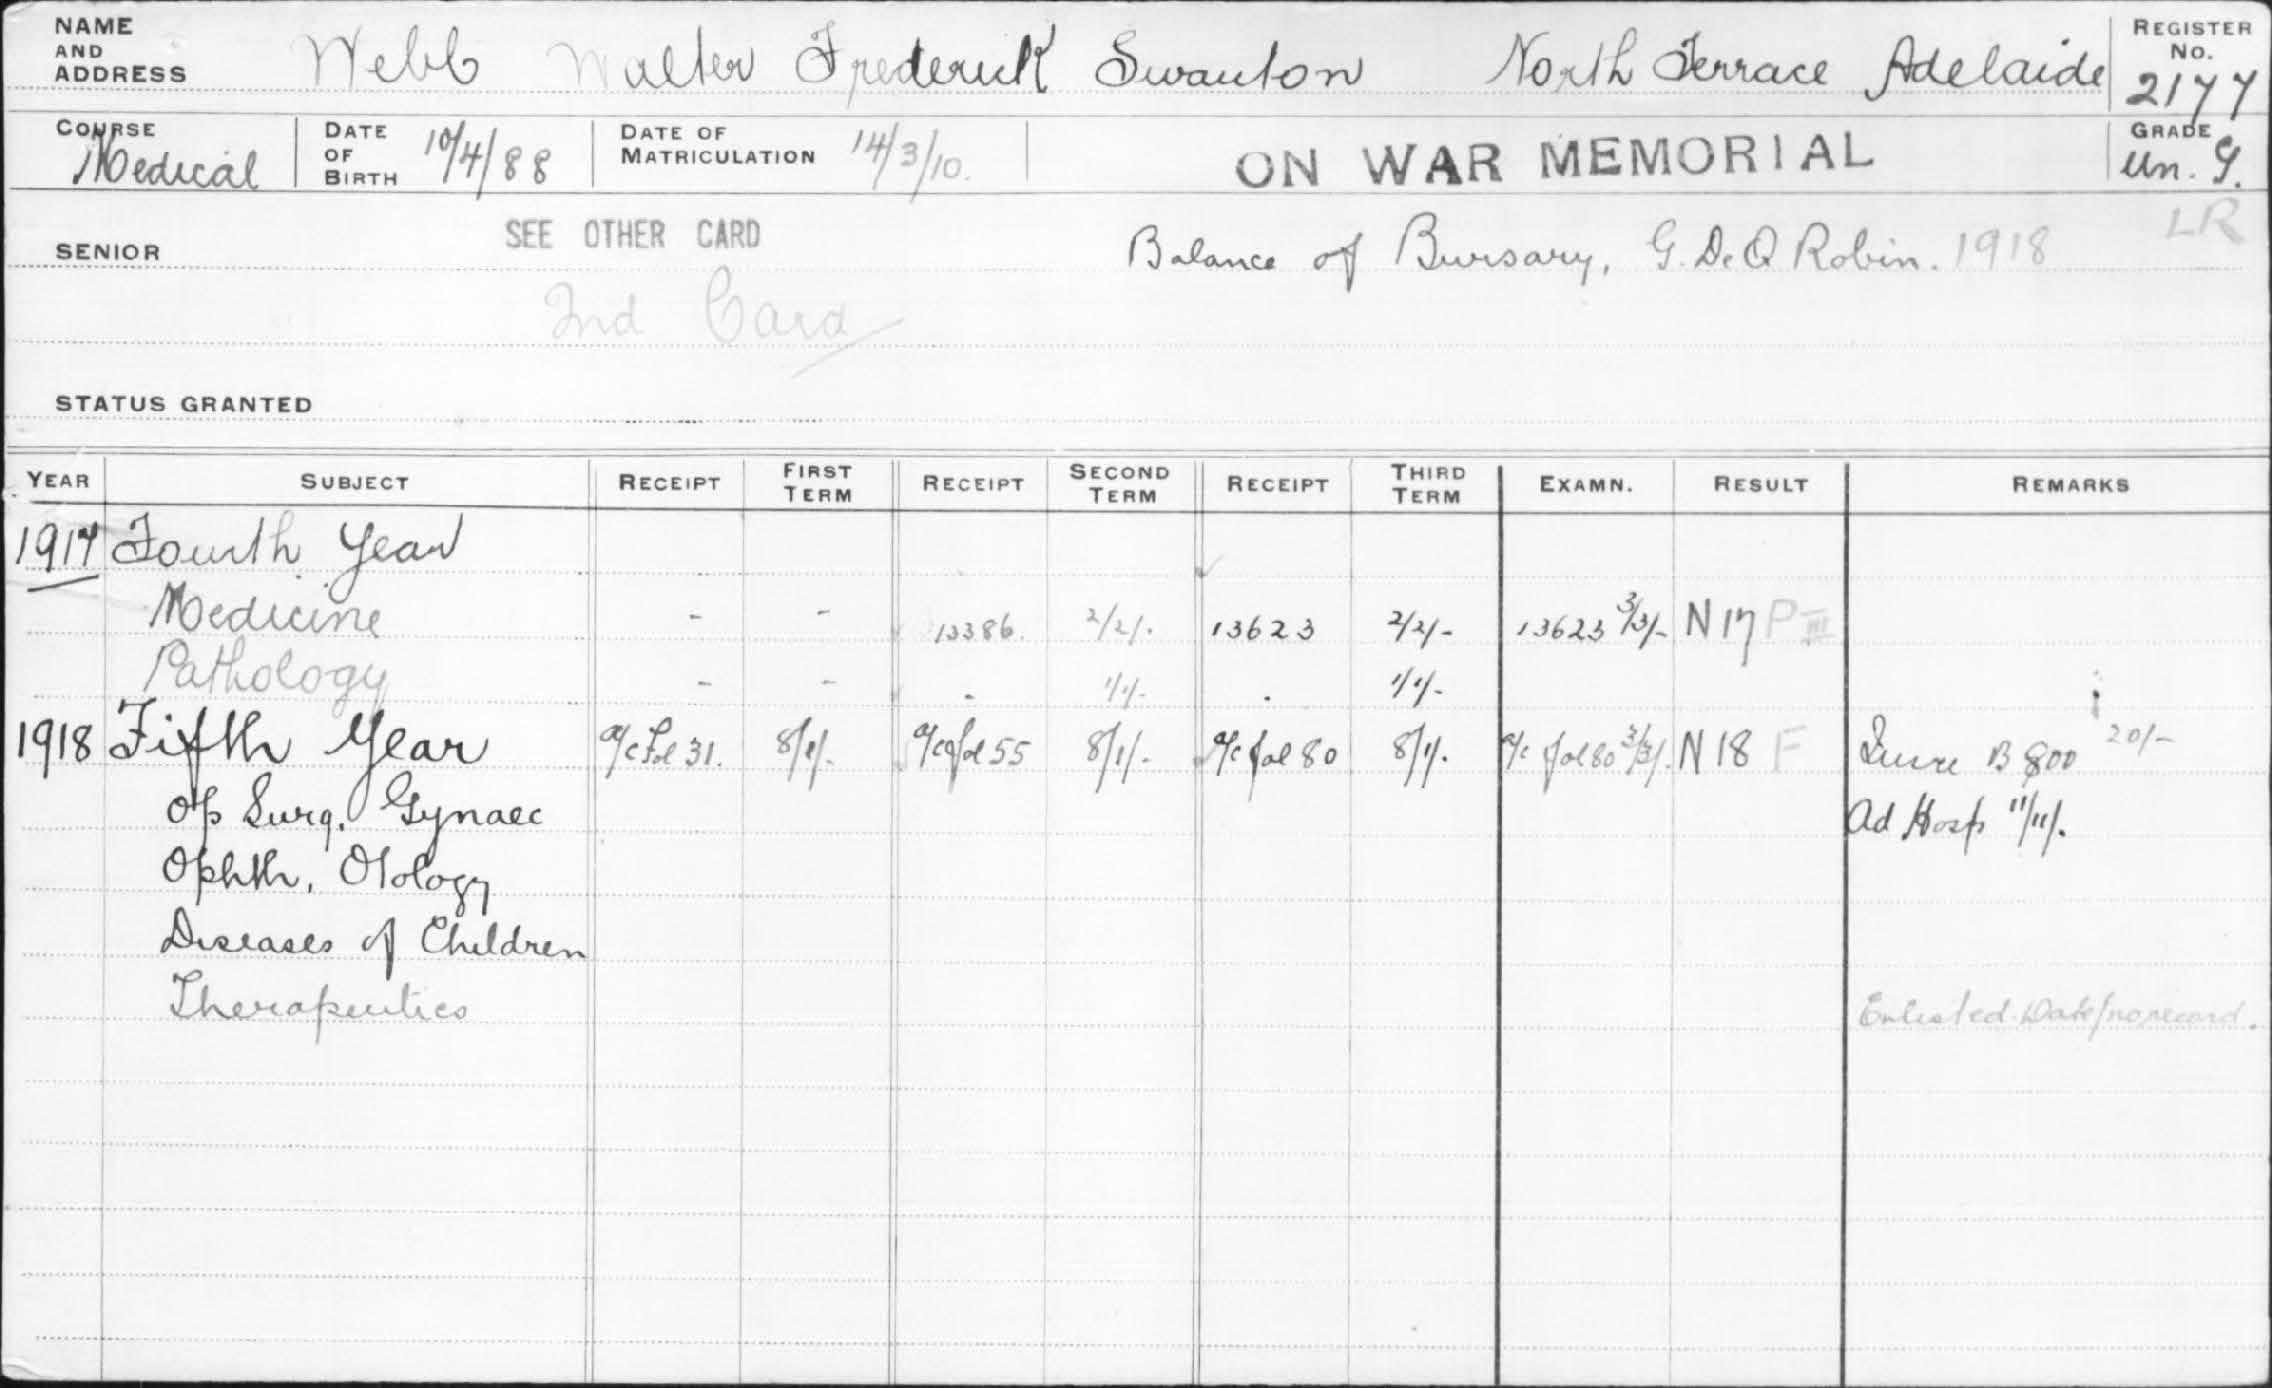 NAME AND ADDRESS Webb Walter Frederick Swanton North Terrace Adelaide REGISTER No. 2177
COURSE Medical DATE OF BIRTH 10/4/88 DATE OF MATRICULATION 14/3/10. ON WAR MEMORIAL GRADE Un. G.
LR
SENIOR SEE OTHER CARD Balance of Bursary, G. De Q Robin. 1918
2nd Card
STATUS GRANTED
YEAR SUBJECT RECEIPT FIRST TERM RECEIPT SECOND TERM RECEIPT THIRD TERM EXAMN. RESULT REMARKS
1917 Fourth Year
Medicine - - 13386 2/2/- 13623 2/2/- 13623 3/3/- N 17 P III
Pathology - - - 1/1/- - 1/1/-
1918 Fifth Year a/c Fol 31. 8/1/- a/c fol 55 8/1/- a/c fol 80 8/1/- a/c fol 80 3/3/- N 18 F B 800 20/-
Op Surg. Gynaec Ad Hosp 11/11/-
Ophth, Otology
Diseases of Children
Therapeutics Enlisted. Date/no record.